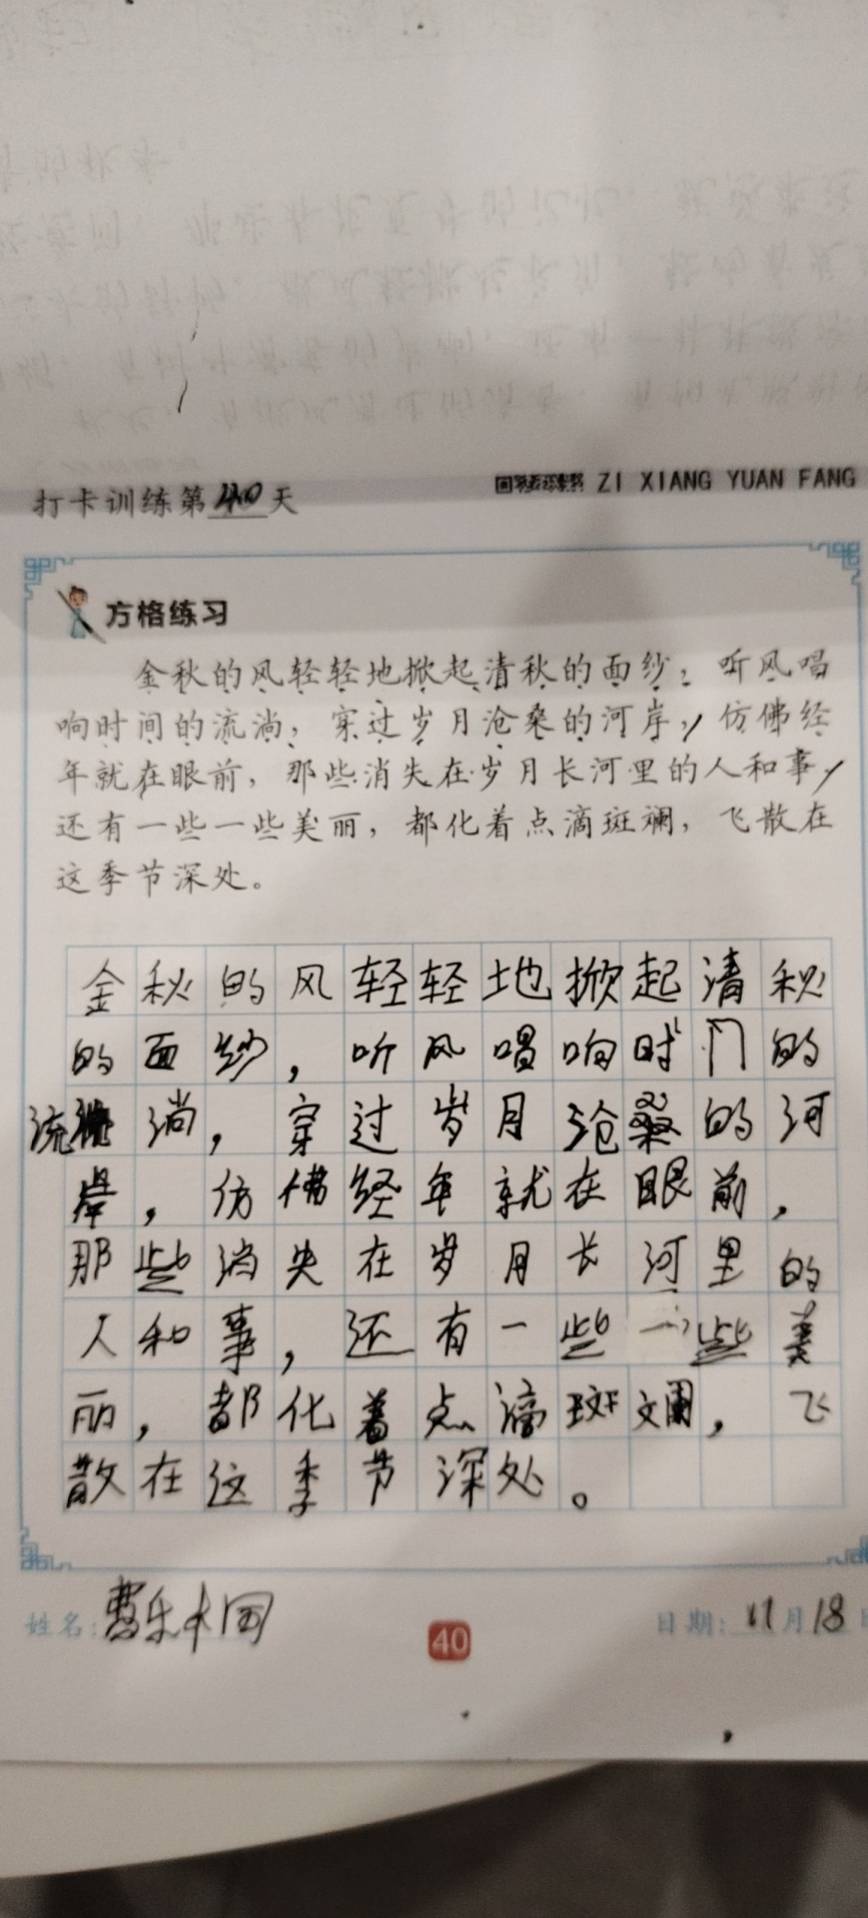 打卡训练第40天
ZI XIANG YUAN FANG
方格练习
金秋的风轻轻地掀起清秋的面纱，听风唱
响时间的流淌，穿过岁月沧桑的河岸，仿佛经
年就在眼前，那些消失在岁月长河里的人和事，
还有一些一些美丽，都化着点滴斑斓，飞散在
这季节深处。
金秋的风轻轻地掀起清秋
的面纱，听风唱响时门的
流淌，穿过岁月沧桑的河
岸，仿佛经年就在眼前，
那些消失在岁月长河里的
人和事，还有一些一些美
丽，都化着点滴斑斓，飞
散在这季节深处。
姓名：
40
日期：11月18日